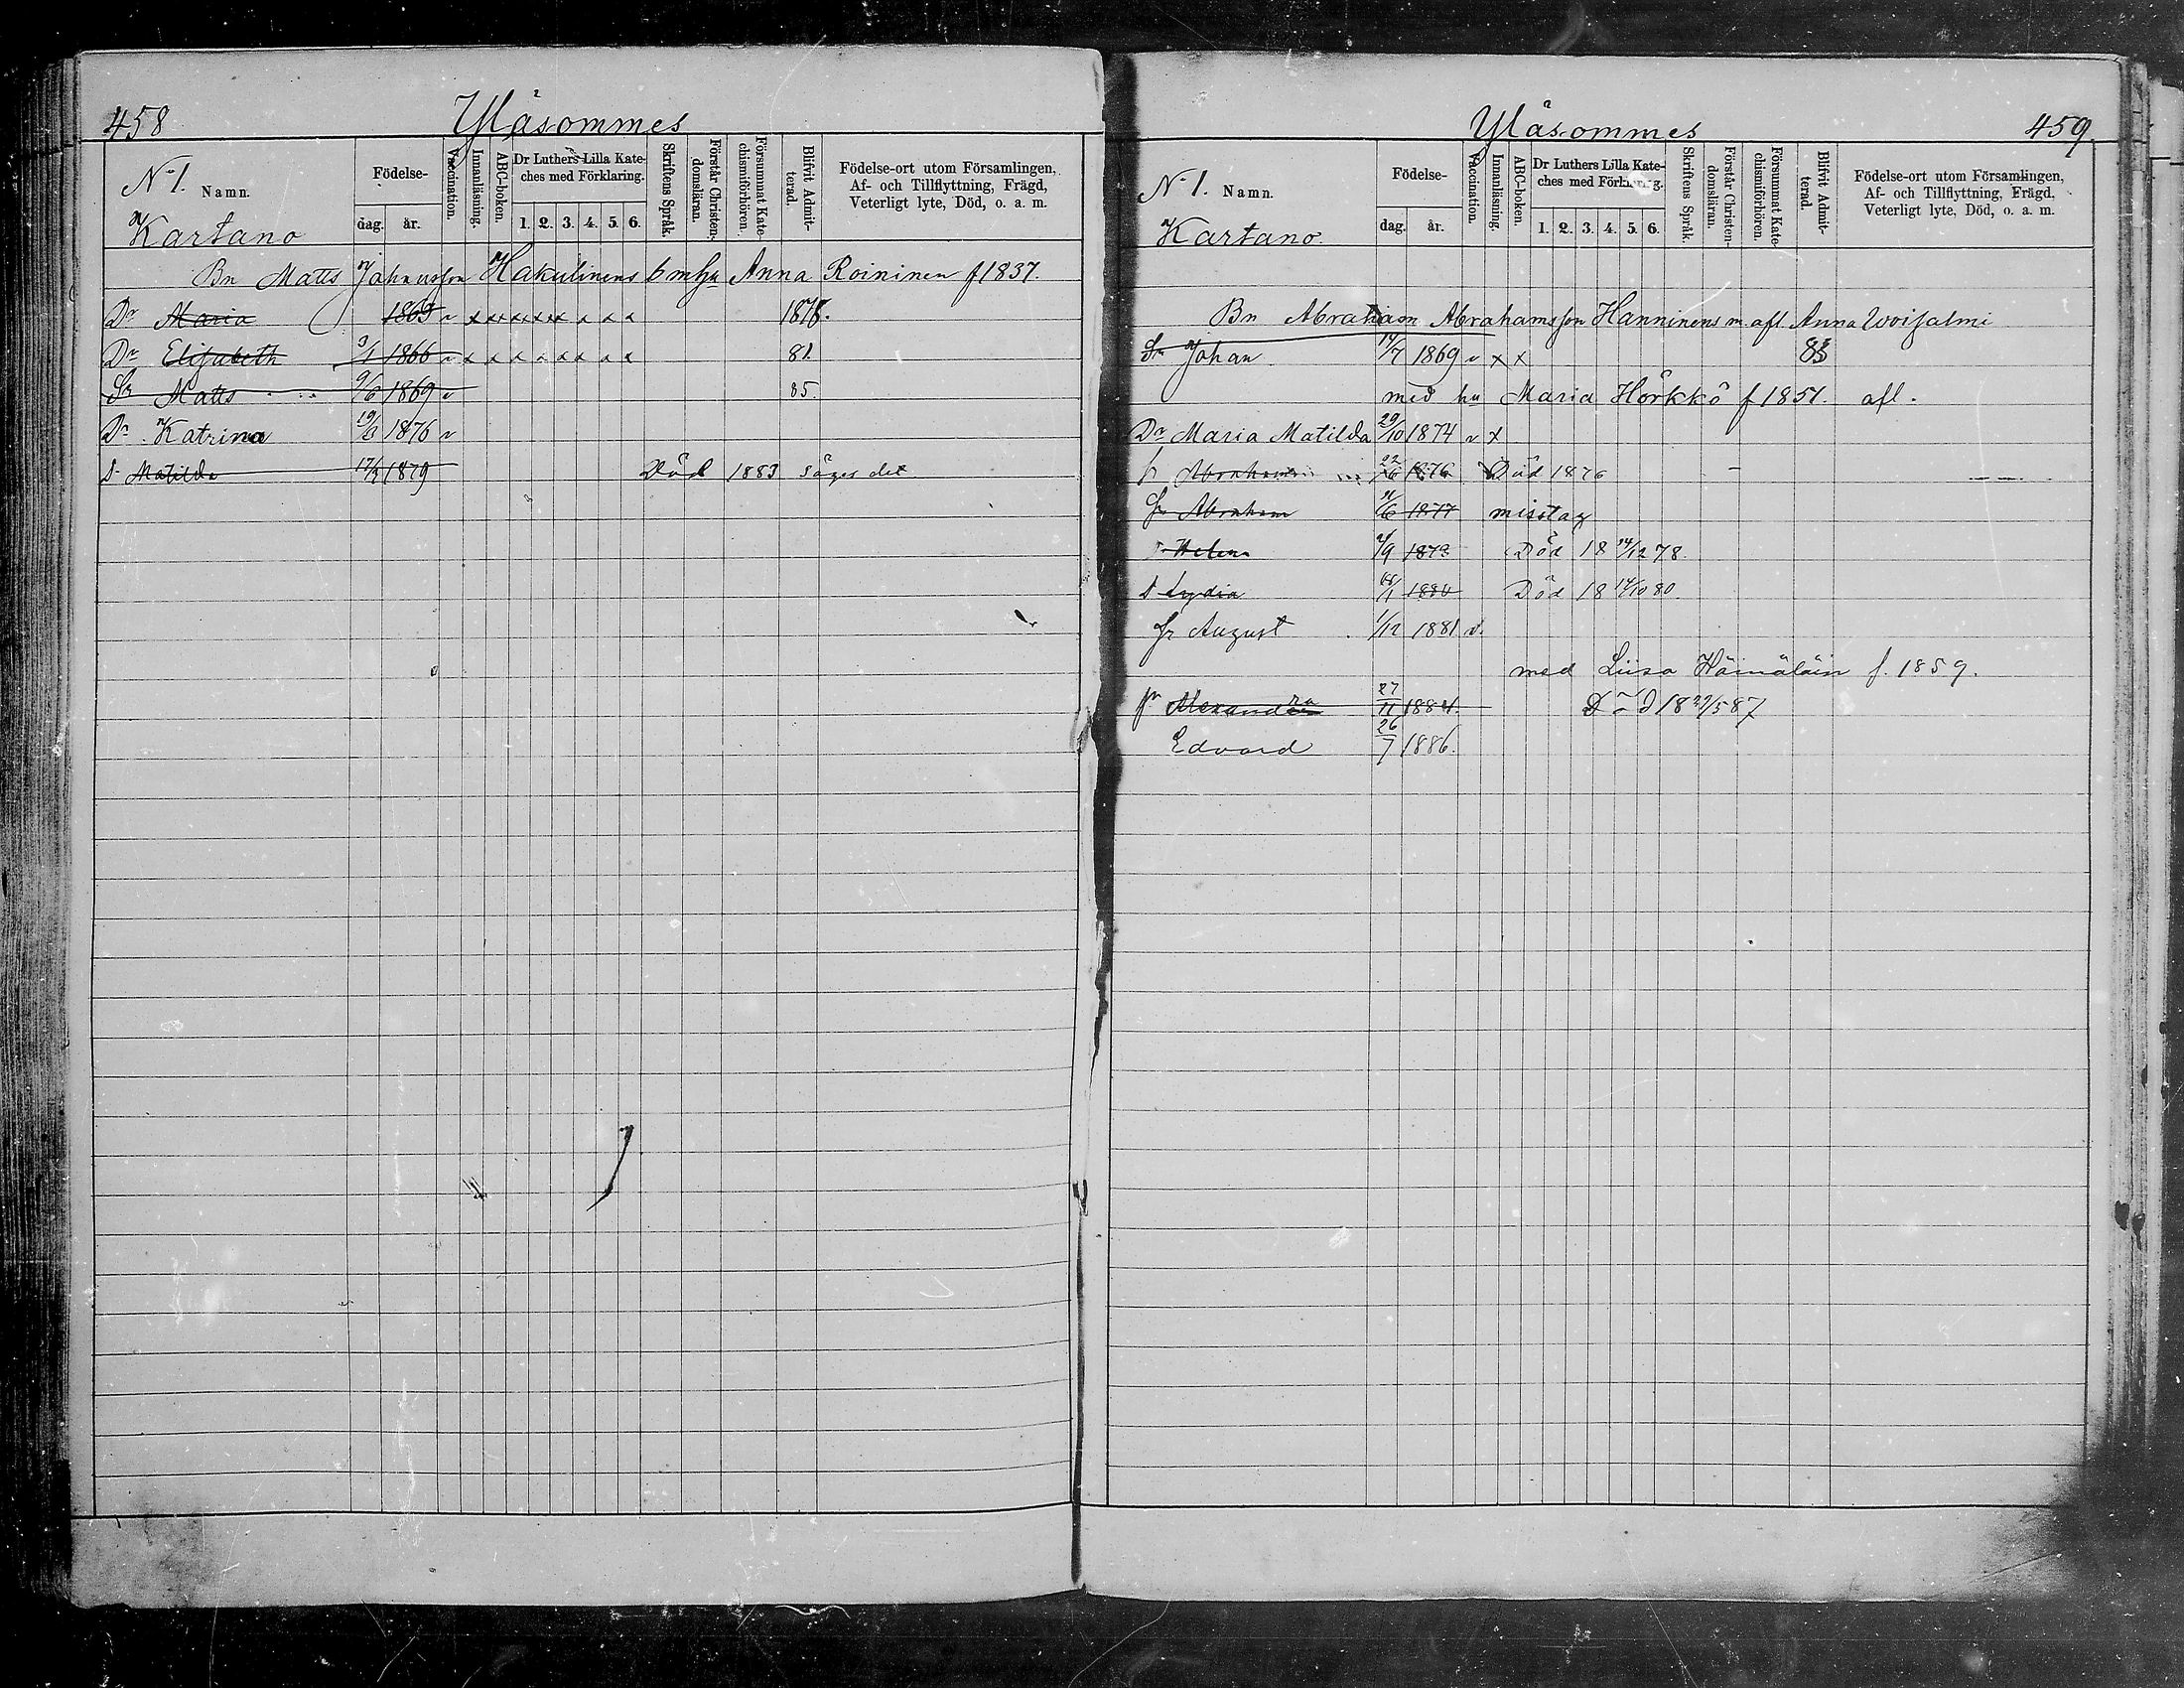 458 Yläsommes
N 1. Namn. Födelse- dag. år. Vaccination. Innanläsning. ABC-boken. Dr Luthers Lilla Kateches med Förklaring. 1. 2. 3. 4. 5. 6. Skriftens Språk. Förstår Christendomsläran. Försummat Katechismiförhören. Blifvit Admitterad. Födelse-ort utom Församlingen, Af- och Tillflyttning, Frägd, Veterligt lyte, Död, o. a. m.
Kartano
Bn Matts Johansson Hakulinens b m hu Anna Roininen f 1837.
Dr Maria 1863 v x x x x x x x x x x 1878.
Dr Elisabeth 3/1 1866 v x x x x x x x x 81.
Sn Matts 9/6 1869 v 85.
Dr Katrina 19/3 1876 v
d. Matilda 17/3 1879 Död 1883 säges det
Yläsommes 459.
N 1. Namn. Födelse- dag. år. Vaccination. Innanläsning. ABC-boken. Dr Luthers Lilla Kateches med Förklaring. 1. 2. 3. 4. 5. 6. Skriftens Språk. Förstår Christendomsläran. Försummat Katechismiförhören. Blifvit Admitterad. Födelse-ort utom Församlingen, Af- och Tillflyttning, Frägd, Veterligt lyte, Död, o. a. m.
Kartano.
Bn Abraham Abrahamsson Hanninens m. afl. Anna Woijalmi
Sn Johan 14/7 1869 v x x 83
med hu Maria Hörkkö f 1851. afl.
Dr Maria Matilda 29/10 1874 v x
Abraham 1876 Död 1876
Sn Abraham 1877 misstag
Helena 2/9 1878 Död 18 14/12 78.
d Lydia 1880 Död 18 14/10 80.
Sn August 1/12 1881 v.
med Liisa Hämäläin f. 1859.
Alexandra 27/11 1884 Död 18 29/5 87
Edvard 26/7 1886.